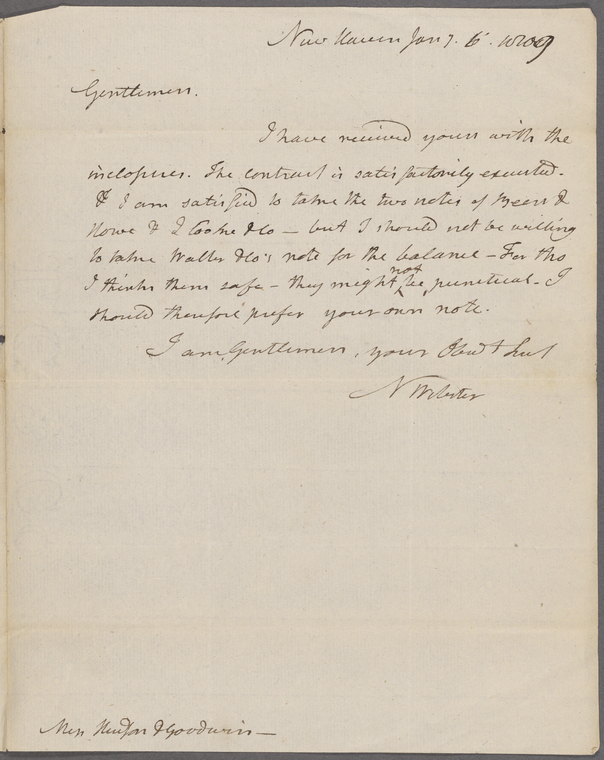 New Haven Jany. 6. 1809
Gentlemen.
I have received yours with the
inclosures. The contract is satisfactorily executed.
& I am satisfied to take the two notes of Beers &
Howe & I Cooke & Co — but I should not be willing
to take Walter & Co's note for the balance — For tho
I think them safe — they might not be punctual — I
should therefore prefer your own note.
I am, Gentlemen, your Obedt Servt
N Webster
Mess Hudson & Goodwin —